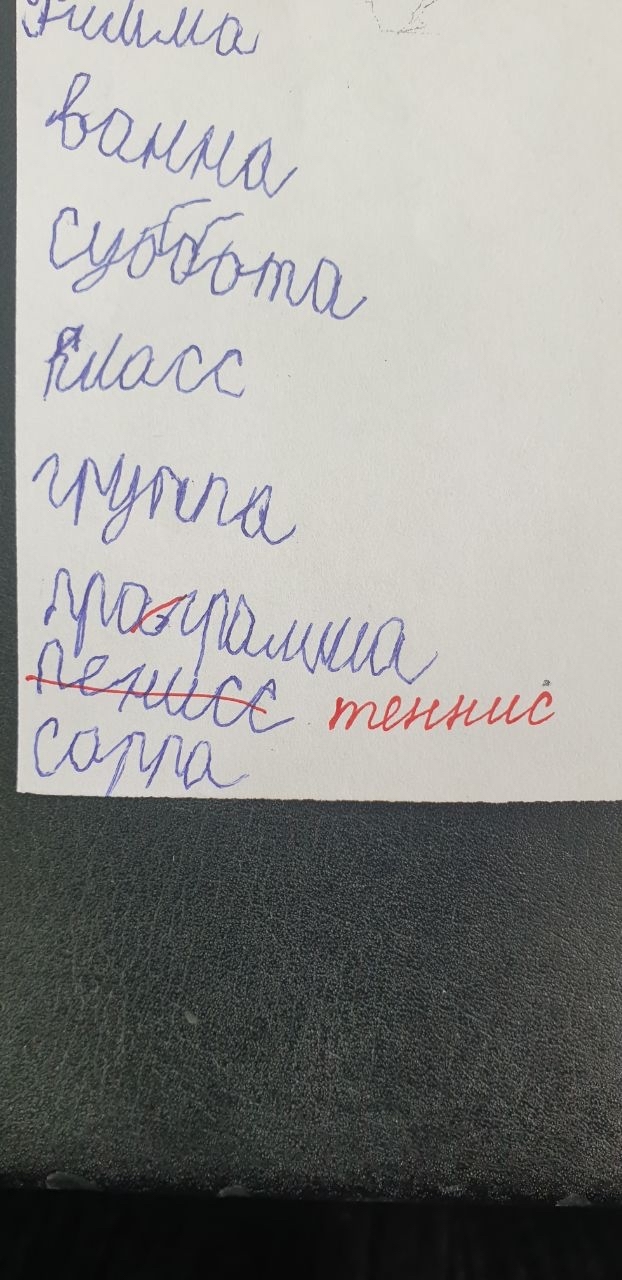 ванна
суббота
класс
группа
программа
пенисс теннис
сорра